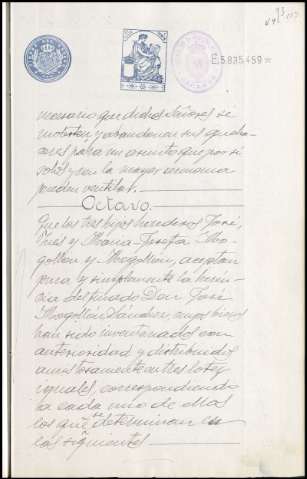 E.5.835.459
necesario que dichos Señores se
molesten y abandonen sus queha-
ceres para un asunto que por si
solos y con la mayor armonia
pueden ventilar.
Octavo.
Que los tres hijos herederos José,
Inés y Maria Josefa Mo-
gollon y Mogollón, aceptan
pura y simplemente la heren-
cia del finado Don José
Mogollón Sánchez, cuyos bienes
han sido inventariados con
anterioridad y distribuidos
amistosamente en tres lotes
iguales, correspondiendo
a cada uno de ellos
los que se determinan en
las siguientes